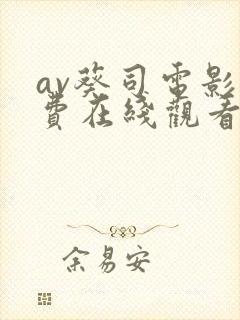 av葵司電影
費在綫觀看
余易安